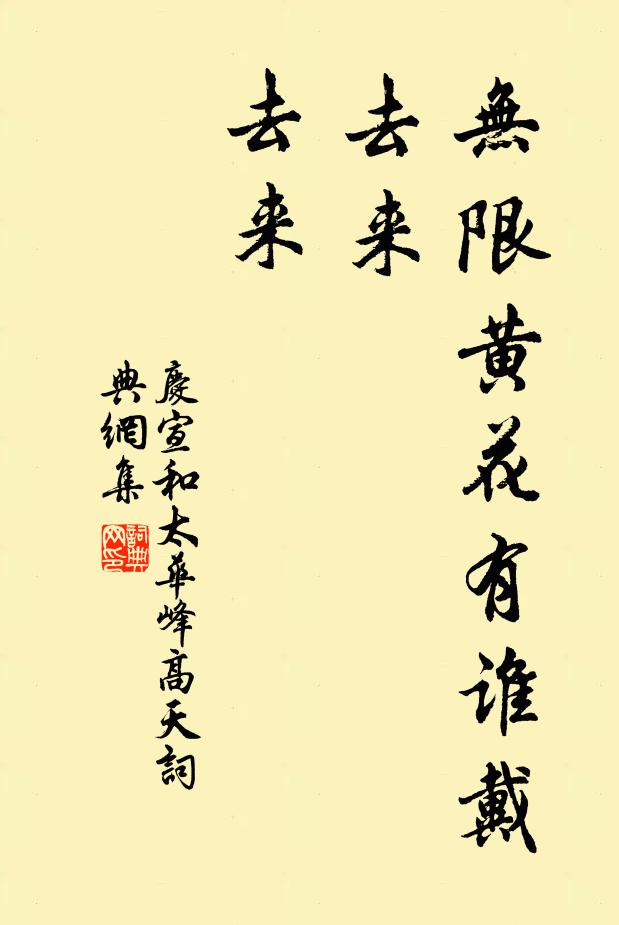 無限黄花有誰戴
去来
去来
慶宣和太華峰高天詞
典網集
詞典
网印